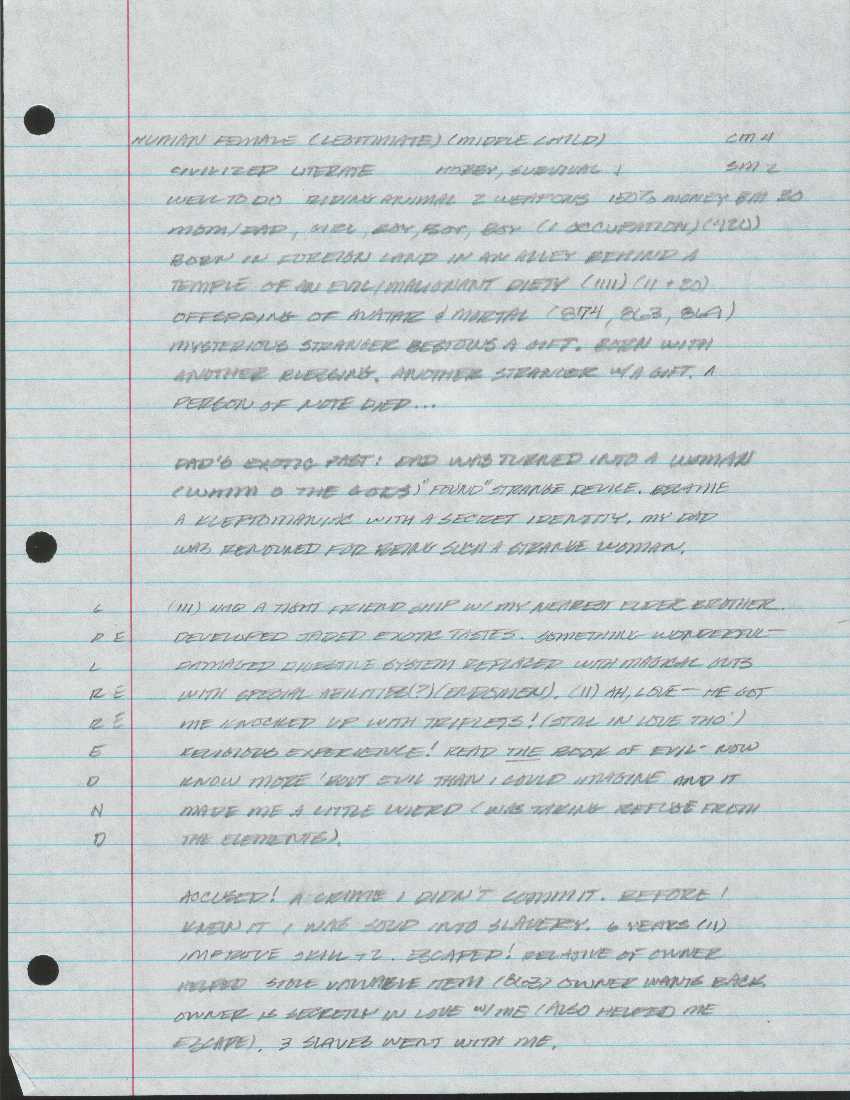 HUMAN FEMALE (LEGITIMATE) (MIDDLE CHILD) CM 4
CIVILIZED LITERATE HOBBY, SURVIVAL 1 SM 2
WELL TO DO RIDING ANIMAL 2 WEAPONS 150% MONEY BM 30
MOM/DAD, GIRL, BOY, BOY, BOY (1 OCCUPATION) (420)
BORN IN FOREIGN LAND IN AN ALLEY BEHIND A
TEMPLE OF AN EVIL/MALIGNANT DIETY (1111) (11 + 20)
OFFSPRING OF AVATAR & MORTAL (874, 863, 869)
MYSTERIOUS STRANGER BESTOWS A GIFT. BORN WITH
ANOTHER BLESSING. ANOTHER STRANGER W/A GIFT. A
PERSON OF NOTE DIED...
DAD'S EXOTIC PAST! DAD WAS TURNED INTO A WOMAN
(WHIM O THE GODS) "FOUND" STRANGE DEVICE. BECAME
A KLEPTOMANIAC WITH A SECRET IDENTITY. MY DAD
WAS RENOUNED FOR BEING SUCH A STRANGE WOMAN.
L (111) HAD A TIGHT FRIENDSHIP W/ MY NEAREST ELDER BROTHER.
P E DEVELOPED JADED EXOTIC TASTES. SOMETHING WONDERFUL—
L DAMAGED DIGESTIVE SYSTEM REPLACED WITH MAGICAL GUTS
R E WITH SPECIAL ABILITIES(?) (ENDSMEN). (11) AH, LOVE — HE GOT
R E ME KNOCKED UP WITH TRIPLETS! (STILL IN LOVE THO')
E RELIGIOUS EXPERIENCE! READ THE BOOK OF EVIL - NOW
D KNOW MORE 'BOUT EVIL THAN I COULD IMAGINE AND IT
N MADE ME A LITTLE WIERD (WAS TAKING REFUGE FROM
D THE ELEMENTS).
ACCUSED! A CRIME I DIDN'T COMMIT. BEFORE I
KNEW IT I WAS SOLD INTO SLAVERY. 6 YEARS (11)
IMPROVE SKILL +2. ESCAPED! RELATIVE OF OWNER
HELPED STOLE VALUABLE ITEM (863) OWNER WANTS BACK
OWNER IS SECRETLY IN LOVE W/ ME (ALSO HELPED ME
ESCAPE). 3 SLAVES WENT WITH ME.